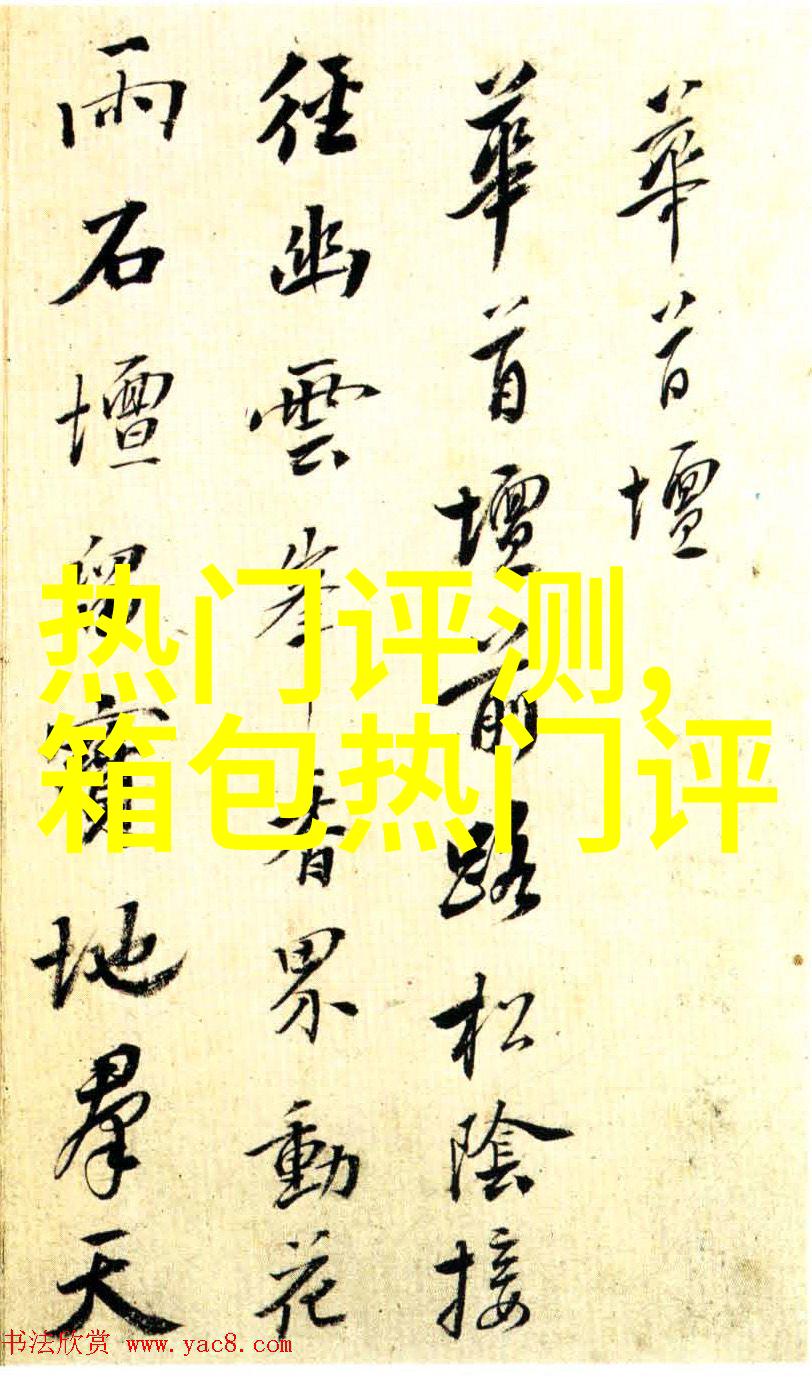 華首壇
華首壇前路松陰接
徑幽雲峯香界動花
雨石壇地羣天
热门评测，
箱包热门评
书法欣赏 www.yac8.com